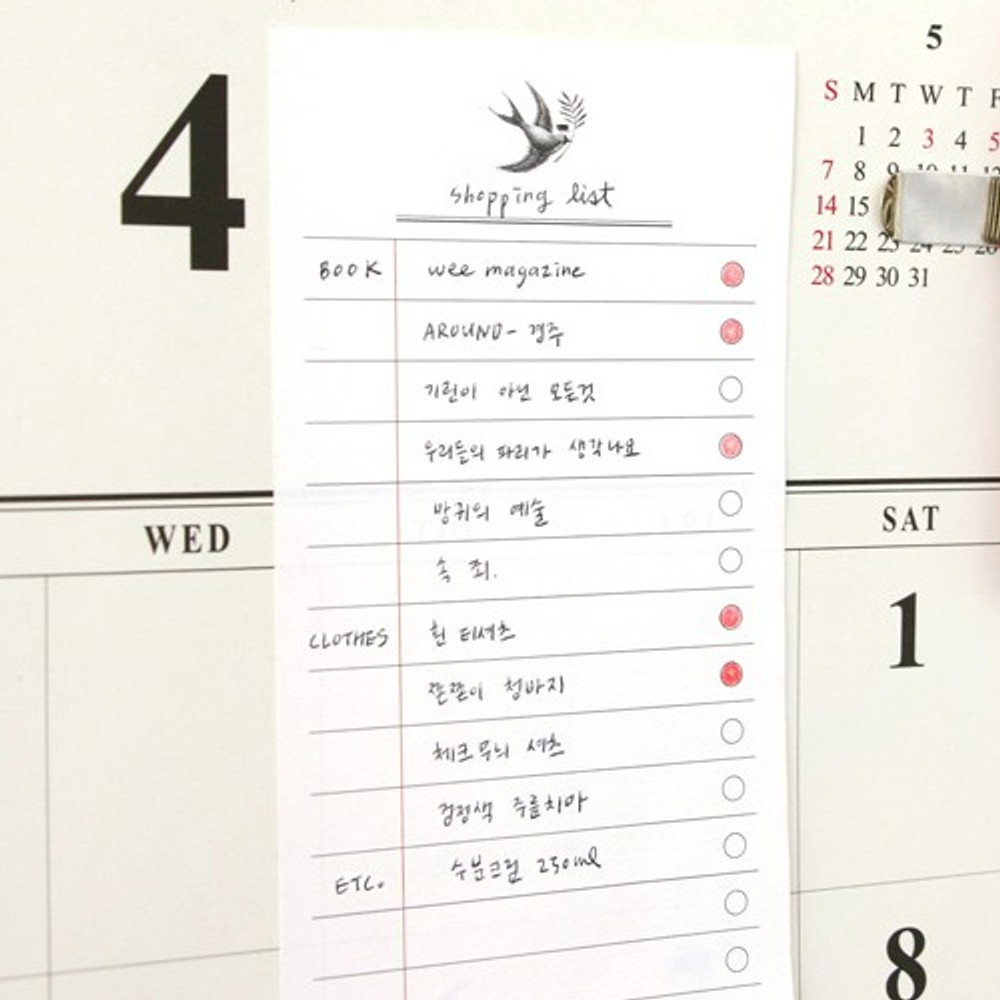 4
5
S M T W T F
1 2 3 4 5
7 8 9 10 11 12
14 15
21 22 23 24 25 26
28 29 30 31
shopping list
BOOK wee magazine
AROUND- 경주
기린이 아닌 모든것
우리들의 파리가 생각나요
방귀의 예술
속 죄.
CLOTHES 흰 티셔츠
쫄쫄이 청바지
체크무늬 셔츠
검정색 주름치마
ETC. 수분크림 250ml
WED
SAT
1
8